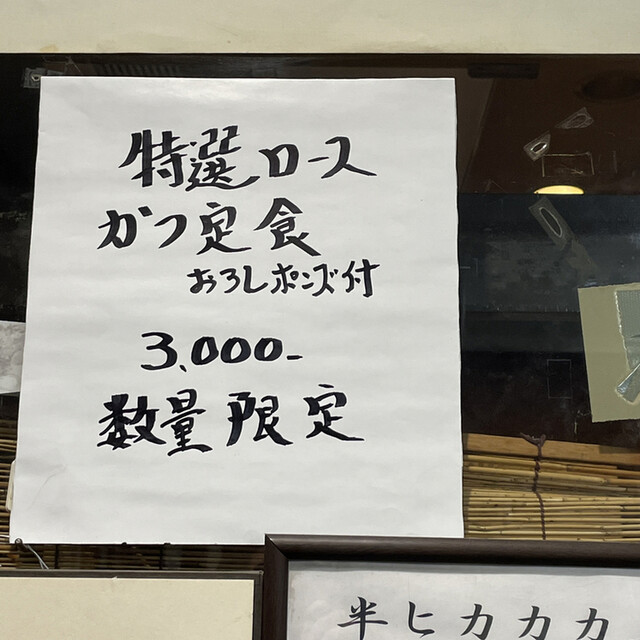 特選ロース
かつ定食
おろしポンズ付
3,000-
数量限定
半ヒカカカ